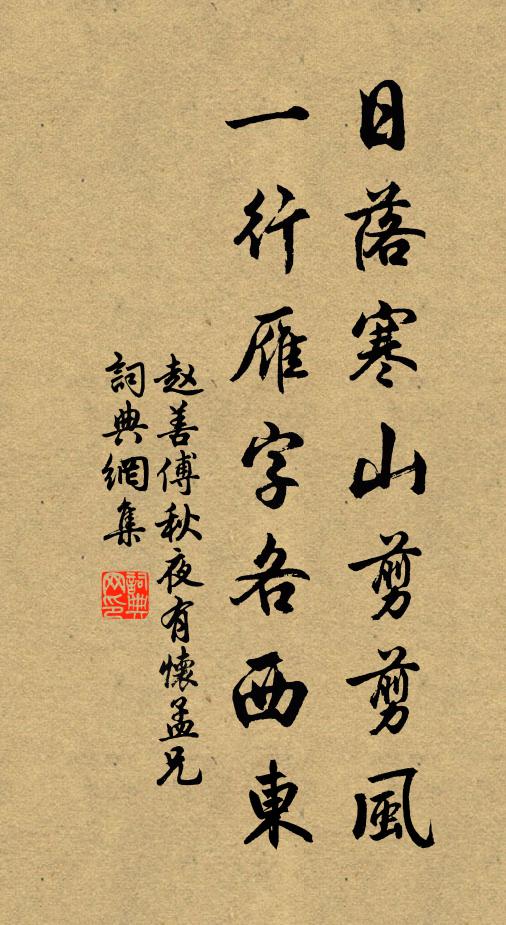 日落寒山剪剪風
一行雁字各西東
赵善傅秋夜有懷孟兄
詞典網集
詞典網印